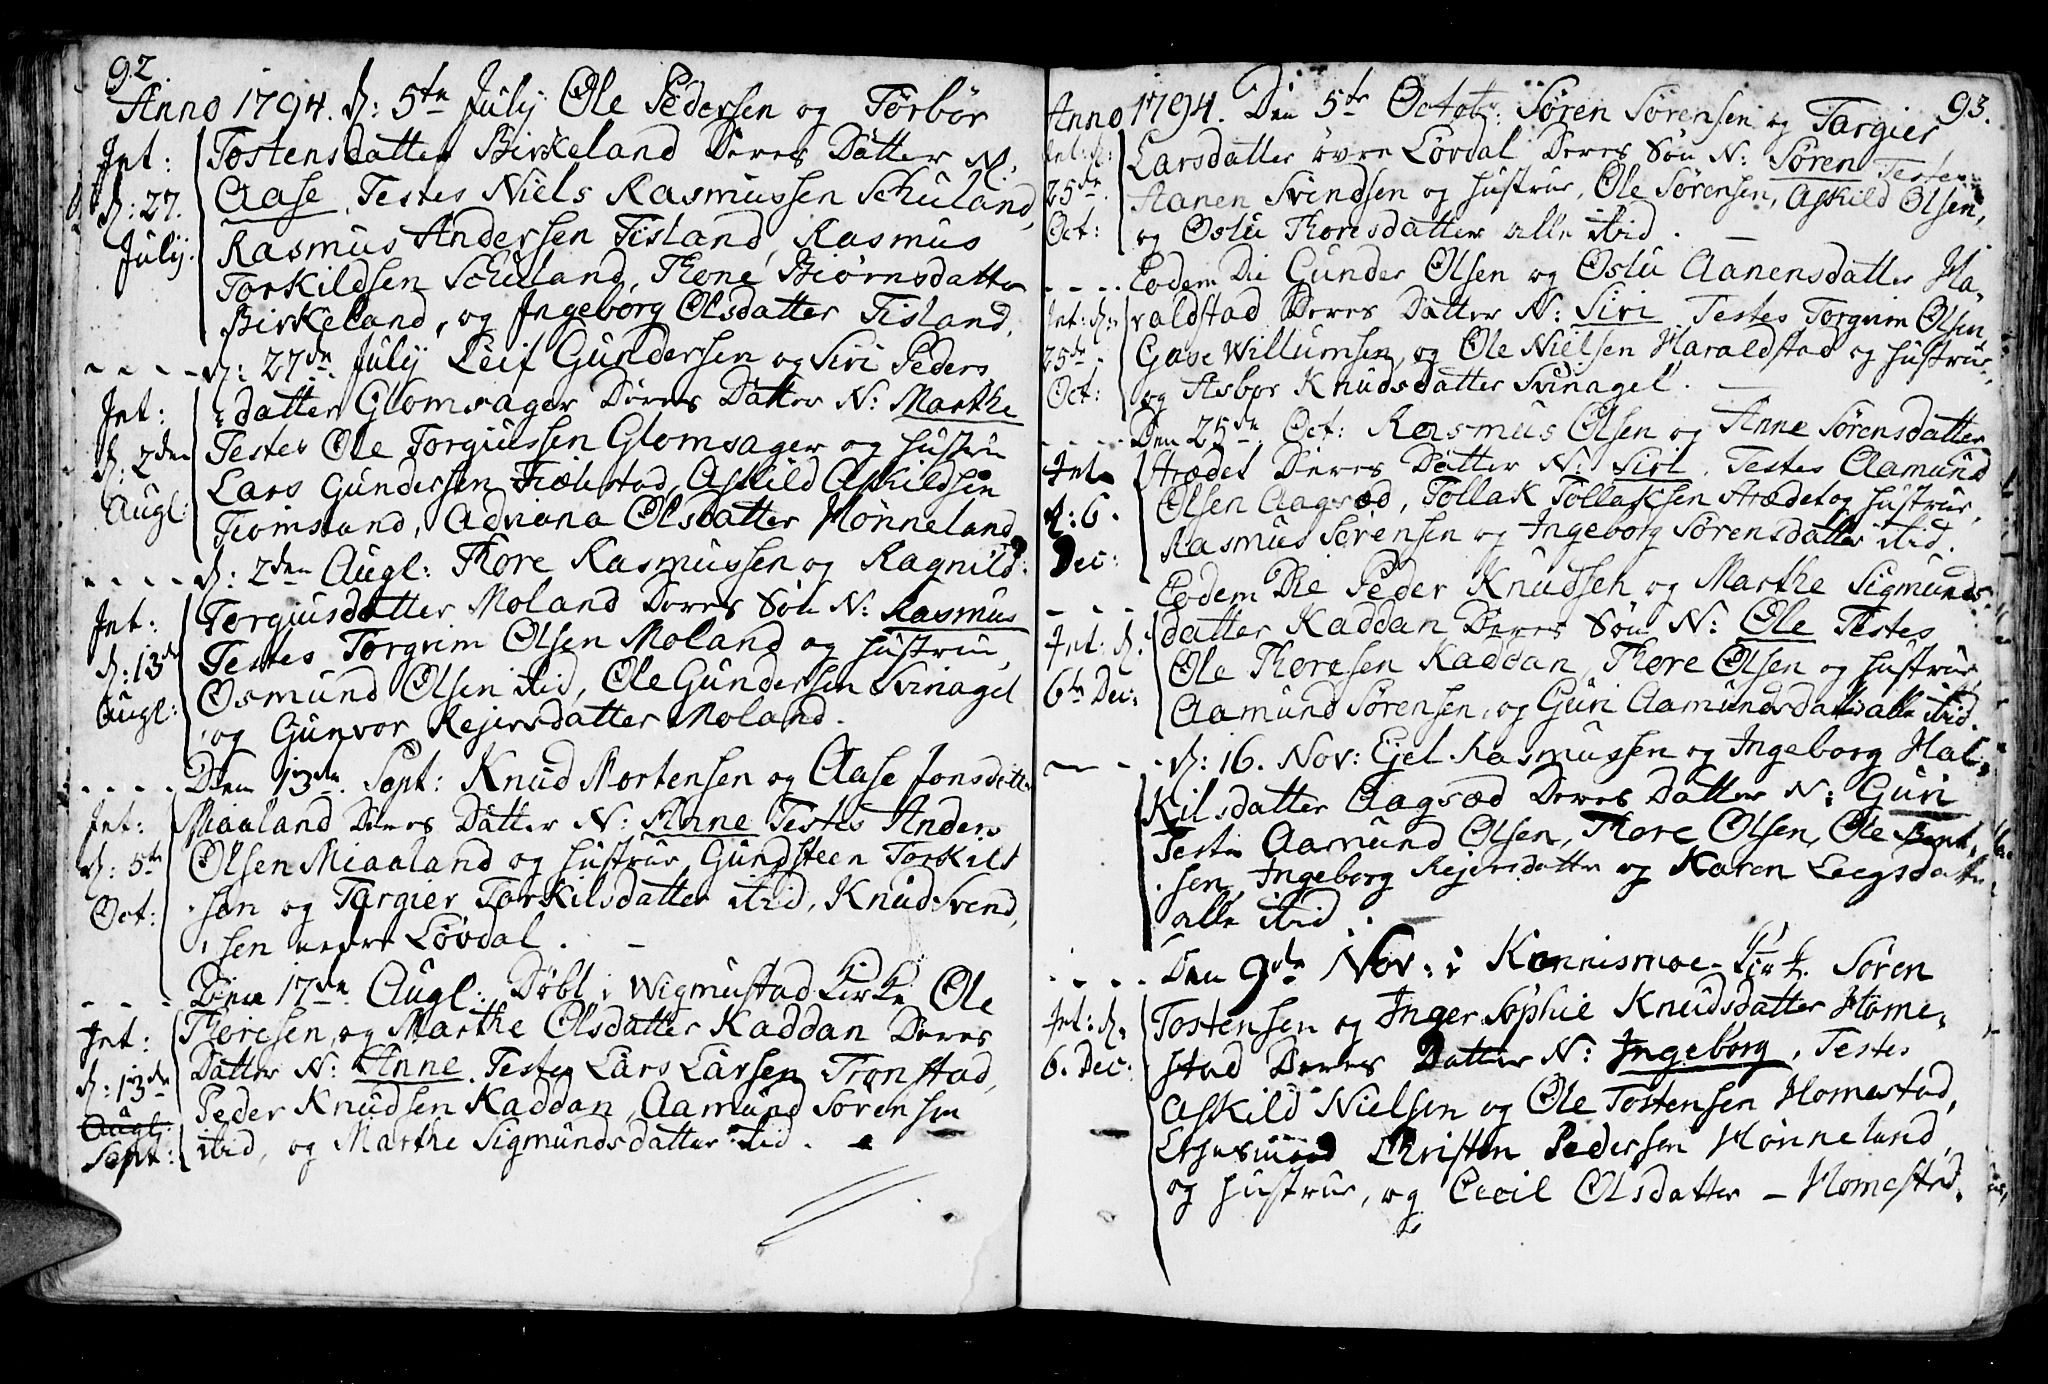 92.
Anno 1794. d: 5te Julij Ole Pedersen og Torbor
Int: Tostensdatter Birkeland Deres Datter N.
d: 27. Aase, Testes Niels Rasmussen Schuland,
Julij. Rasmus Andersen Fisland, Rasmus
Torkildsen Schuland, Thone Biørnsdatter
Birkeland, og Ingeborg Olsdatter Fisland.
d: 27de July Leif Gundersen og Siri Peders
Int: datter Glomsager Deres Datter N: Marthe
d: 2den Testes Ole Torgiussen Glomsager og Hustrue
Augl: Lars Gundersen Trælstad, Askild Askildsen
Tiomsland, Adriana Olsdatter Hönneland
d: 2den Augl: Thore Rasmussen og Ragnild
Int: Torgiusdatter Moland Deres Sön N: Rasmus
d: 13de Testes Torgrim Olsen Moland og Hustrue,
Augl: Osmund Olsen ibid, Ole Gundersen Svinagel
og Gunvor Rejersdatter Moland.
Den 13de Sept: Knud Mortensen og Aase Jonsdatter
Int: Miaaland Deres Datter N: Anne Testes Anders
d: 5te Olsen Miaaland og Hustrue, Gundsteen Torkilt
Oct: sen og Targier Torkilsdatter ibid, Knud Svend,
sen nedre Lövdal.
Den 17de Augl: Döbt i Wigmustad Kirke Ole
Int: Thoresen, og Marthe Olsdatter Kaddan Deres
d: 13de Datter N: Anne. Testes Lars Larsen Tronstad,
Augl: Peder Knudsen Kaddan, Aamund Sörensen
Sept: ibid, og Marthe Sigmundsdatter ibid.
93.
Anno 1794. Den 5te Octob: Sören Sörensen og Targier
Int: d: Larsdatter övre Lövdal Deres Sön N: Sören Testes
25de Aanen Svendsen og Hustrue, Ole Sörensen, Askild Olsen,
Oct: og Oslu Thoresdatter alle ibid.
Eodem Die Gunder Olsen og Oslu Aanensdatter Ha,
Int: d: raldstad Deres Datter N: Siri Testes Torgrim Olsen
25de Gase Willumsen, og Ole Nielsen Haraldstad og Hustrue,
Oct: og Asbor Knudsdatter Svinagel.
Den 25de Oct: Rasmus Olsen og Anne Sörensdatter
Int. Strædet Deres Datter N: Siri. Testes Aamund
d: 6. Olsen Aagsæd, Tollak Tollaksen Strædet og Hustrue,
Dec: Rasmus Sörensen og Ingeborg Sörensdatter ibid.
Eodem Die Peder Knudsen og Marthe Sigmunds
Int: d. datter Kaddan Deres Sön N: Ole Testes
6te Dec: Ole Thoresen Kaddan, Thore Olsen og Hustrue,
Aamund Sörensen, og Guri Aamundsdatter alle ibid.
d: 16. Nov: Ejel Rasmussen og Ingeborg Hal,
Kilsdatter Aagsæd Deres Datter N: Guri
Teste Aamund Olsen, Thore Olsen, Ole Bent,
sen, Ingeborg Rejersdatter og Karen Leegsdatter
alle ibid.
Den 9de Nov: i Konnismoe Kirk. Sören
Int: d. Tostensen og Inger Sophie Knudsdatter Home,
6. Dec: stad Deres Datter N: Ingeborg. Testes
Askild Nielsen og Ole Tostensen Homestad,
Lehnsmand Christen Pedersen Hönneland,
og Hustrue, og Cecil Olsdatter – Homestad.